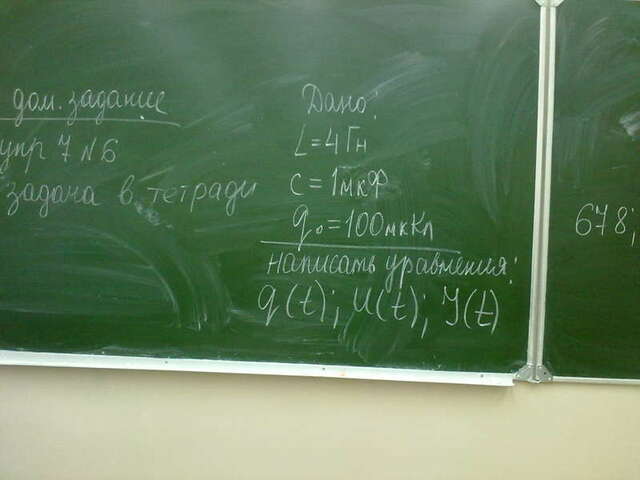 дом. задание
упр 7 N6
задача в тетради
Дано:
L=4Гн
C=1мкФ
q₀=100мкКл
написать уравнения:
q(t); U(t); I(t)
678;